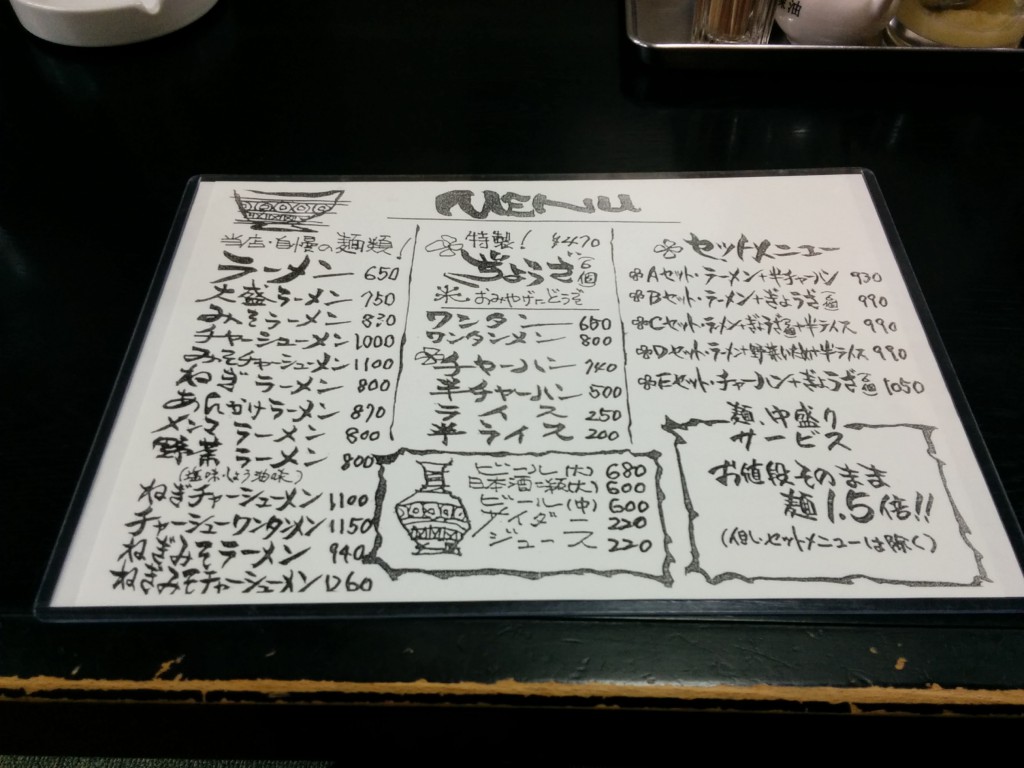 油
MENU
当店・自慢の麺類!
ラーメン 650
大盛ラーメン 750
みそラーメン 830
チャーシューメン 1000
みそチャーシューメン 1100
ねぎラーメン 800
あんかけラーメン 870
メンマラーメン 800
野菜ラーメン 800
(塩味・しょう油味)
ねぎチャーシューメン 1100
チャーシューワンタンメン 1150
ねぎみそラーメン 940
ねぎみそチャーシューメン 1260
特製! ¥470
ぎょうざ 6個
米 おみやげにどうぞ
ワンタン 600
ワンタンメン 800
チャーハン 740
半チャーハン 500
ライス 250
半ライス 200
ビール(大) 680
日本酒二級(大) 600
ビール(中) 600
サイダー 220
ジュース 220
セットメニュー
Aセット・ラーメン+半チャーハン 930
Bセット・ラーメン+ぎょうざ6個 990
Cセット・ラーメン+ぎょうざ +半ライス 990
Dセット・ラーメン+野菜いため+半ライス 990
Eセット・チャーハン+ぎょうざ6個 1050
麺、中盛り
サービス
お値段そのまま
麺1.5倍!!
(但しセットメニューは除く)